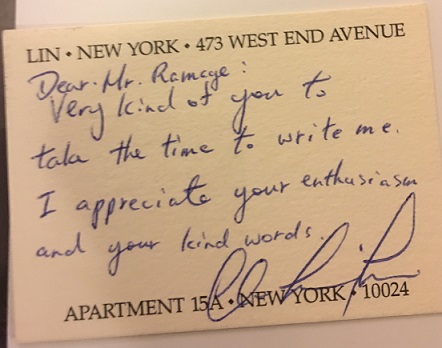 LIN • NEW YORK • 473 WEST END AVENUE
Dear Mr. Ramage:
Very kind of you to
take the time to write me.
I appreciate your enthusiasm
and your kind words.
APARTMENT 15A • NEW YORK • 10024